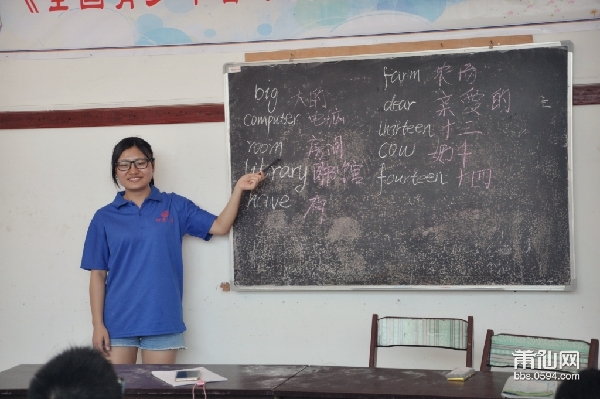 big 大的
computer 电脑
room 房间
library 图书馆
have 有
farm 农场
dear 亲爱的
thirteen 十三
cow 奶牛
fourteen 十四
莆仙网
bbs.0594.com